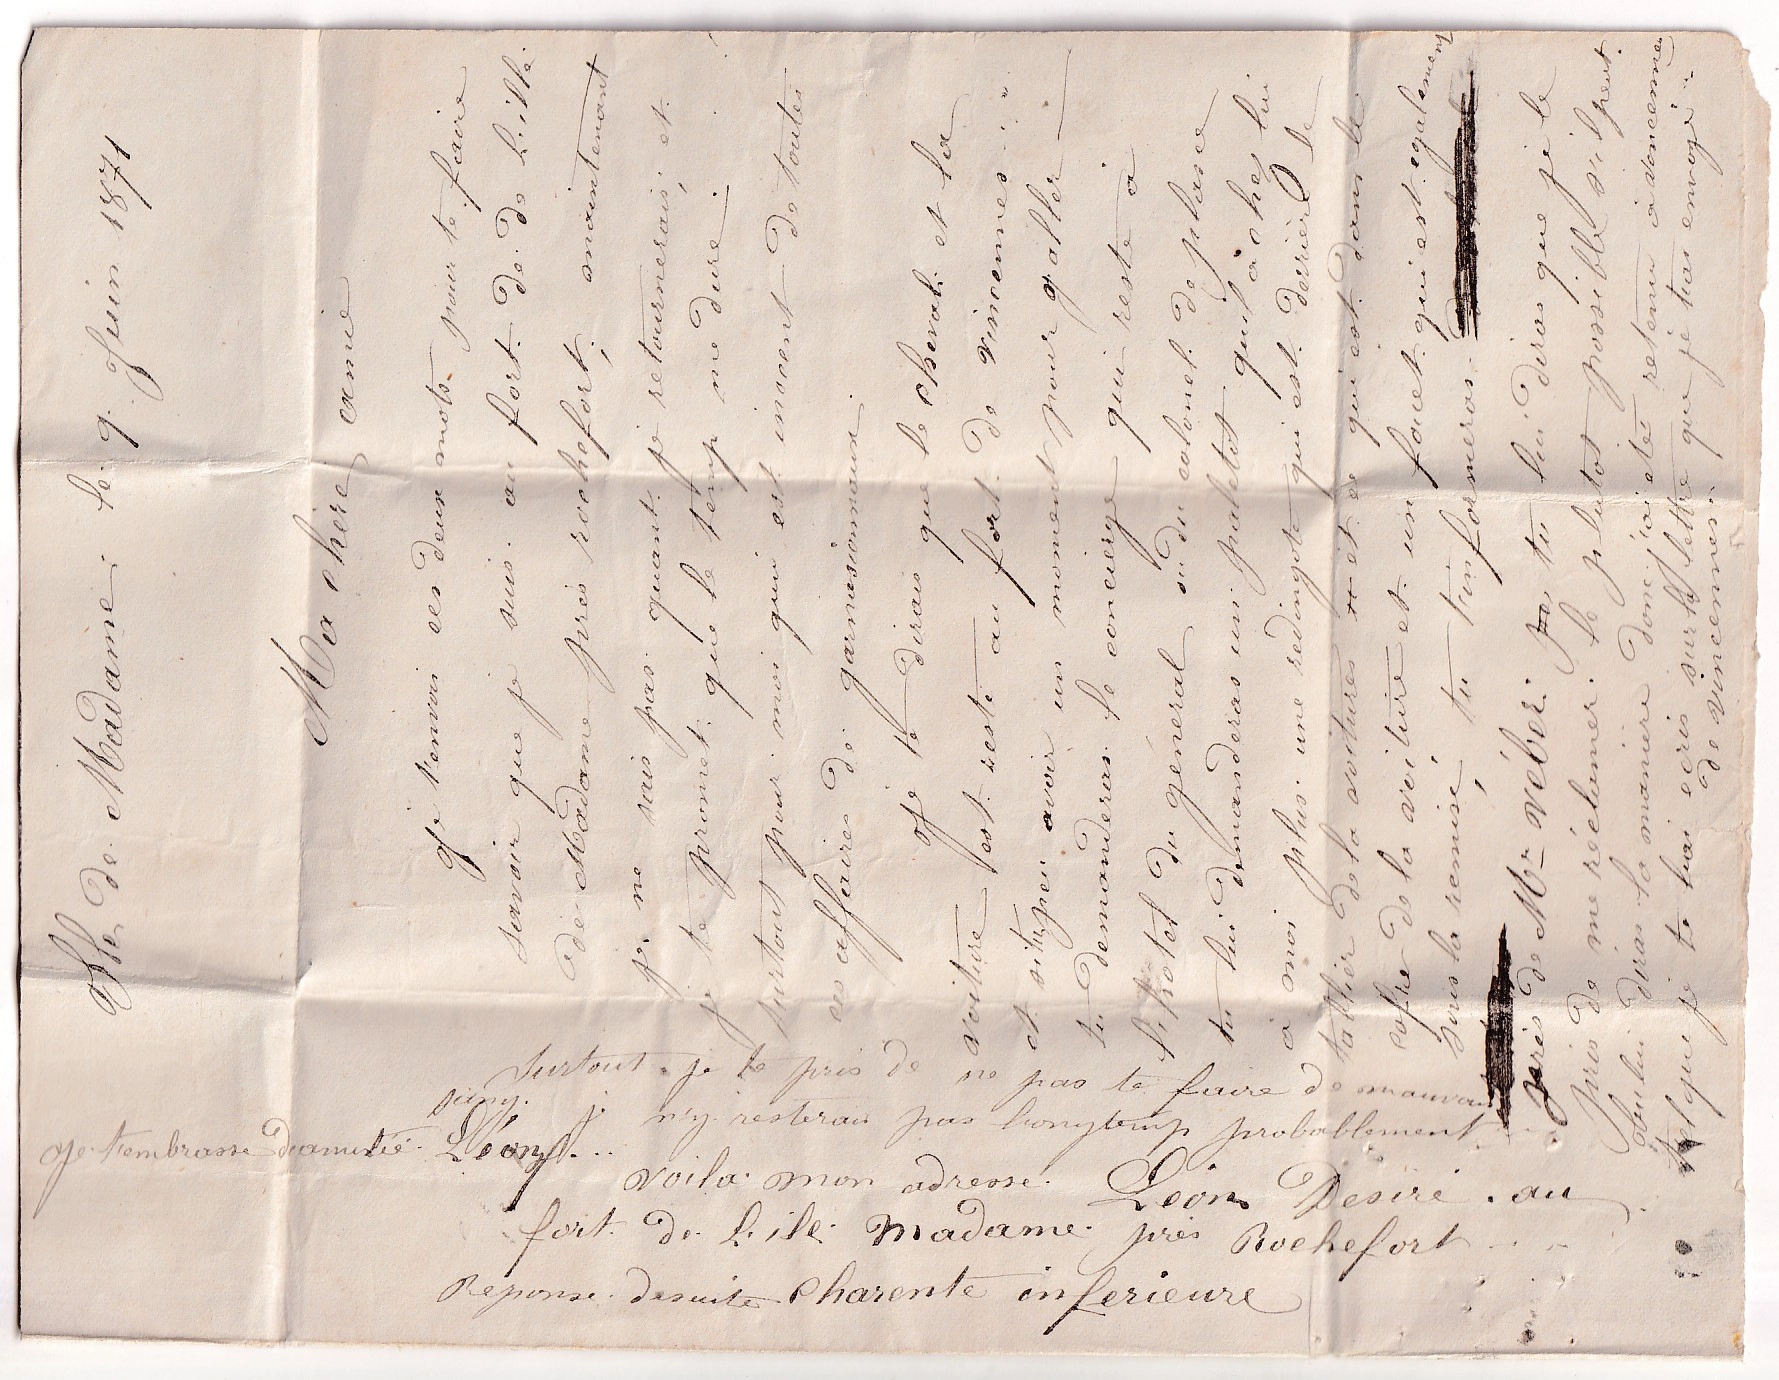 Ile de Madame le 9 Juin 1871
Ma chère amie
Je t'envoi ces deux mots pour te faire
savoir que je suis au fort de de L'ille
de Madame près rochefort, maintenant
je ne sais pas quant je retournerais, et
je te promet que le temp me dure
surtout pour moi qui est inocent de toutes
ces affaires de garnisonnaux
Je te dirais que le cheval et la
voiture est resté au fort de vincennes
et si tu peu avoir un moment pour y aller
tu demanderas le concierge qui reste à
l'hotel du général ou du colonel de place
tu lui demanderas un paletot qu'il a chez lui
à moi plus une redingote qui est derrière le
tallier de la voitures et ce qui est dans le
cofre de la voiture et un fouet qui est egalement
sous la remise, tu t'in formeras
près de Mr véber tu lui diras que je le
pris de me réclamer le plutot possible s'il peut
tu lui diras la manière donc j'ai etés retenu à vincennes
tel que je te l'ai ecris sur la lettre que je t'ai envoyé
de vincennes
Surtout je te pris de ne pas te faire de mauvais
sang. je n'y resterai pas longtemp probablement
Je t'embrasse d'amitié Léon
Voila mon adresse. Léon Desiré au
fort de L'ile Madame près Rochefort
Reponse desuite Charente inferieure